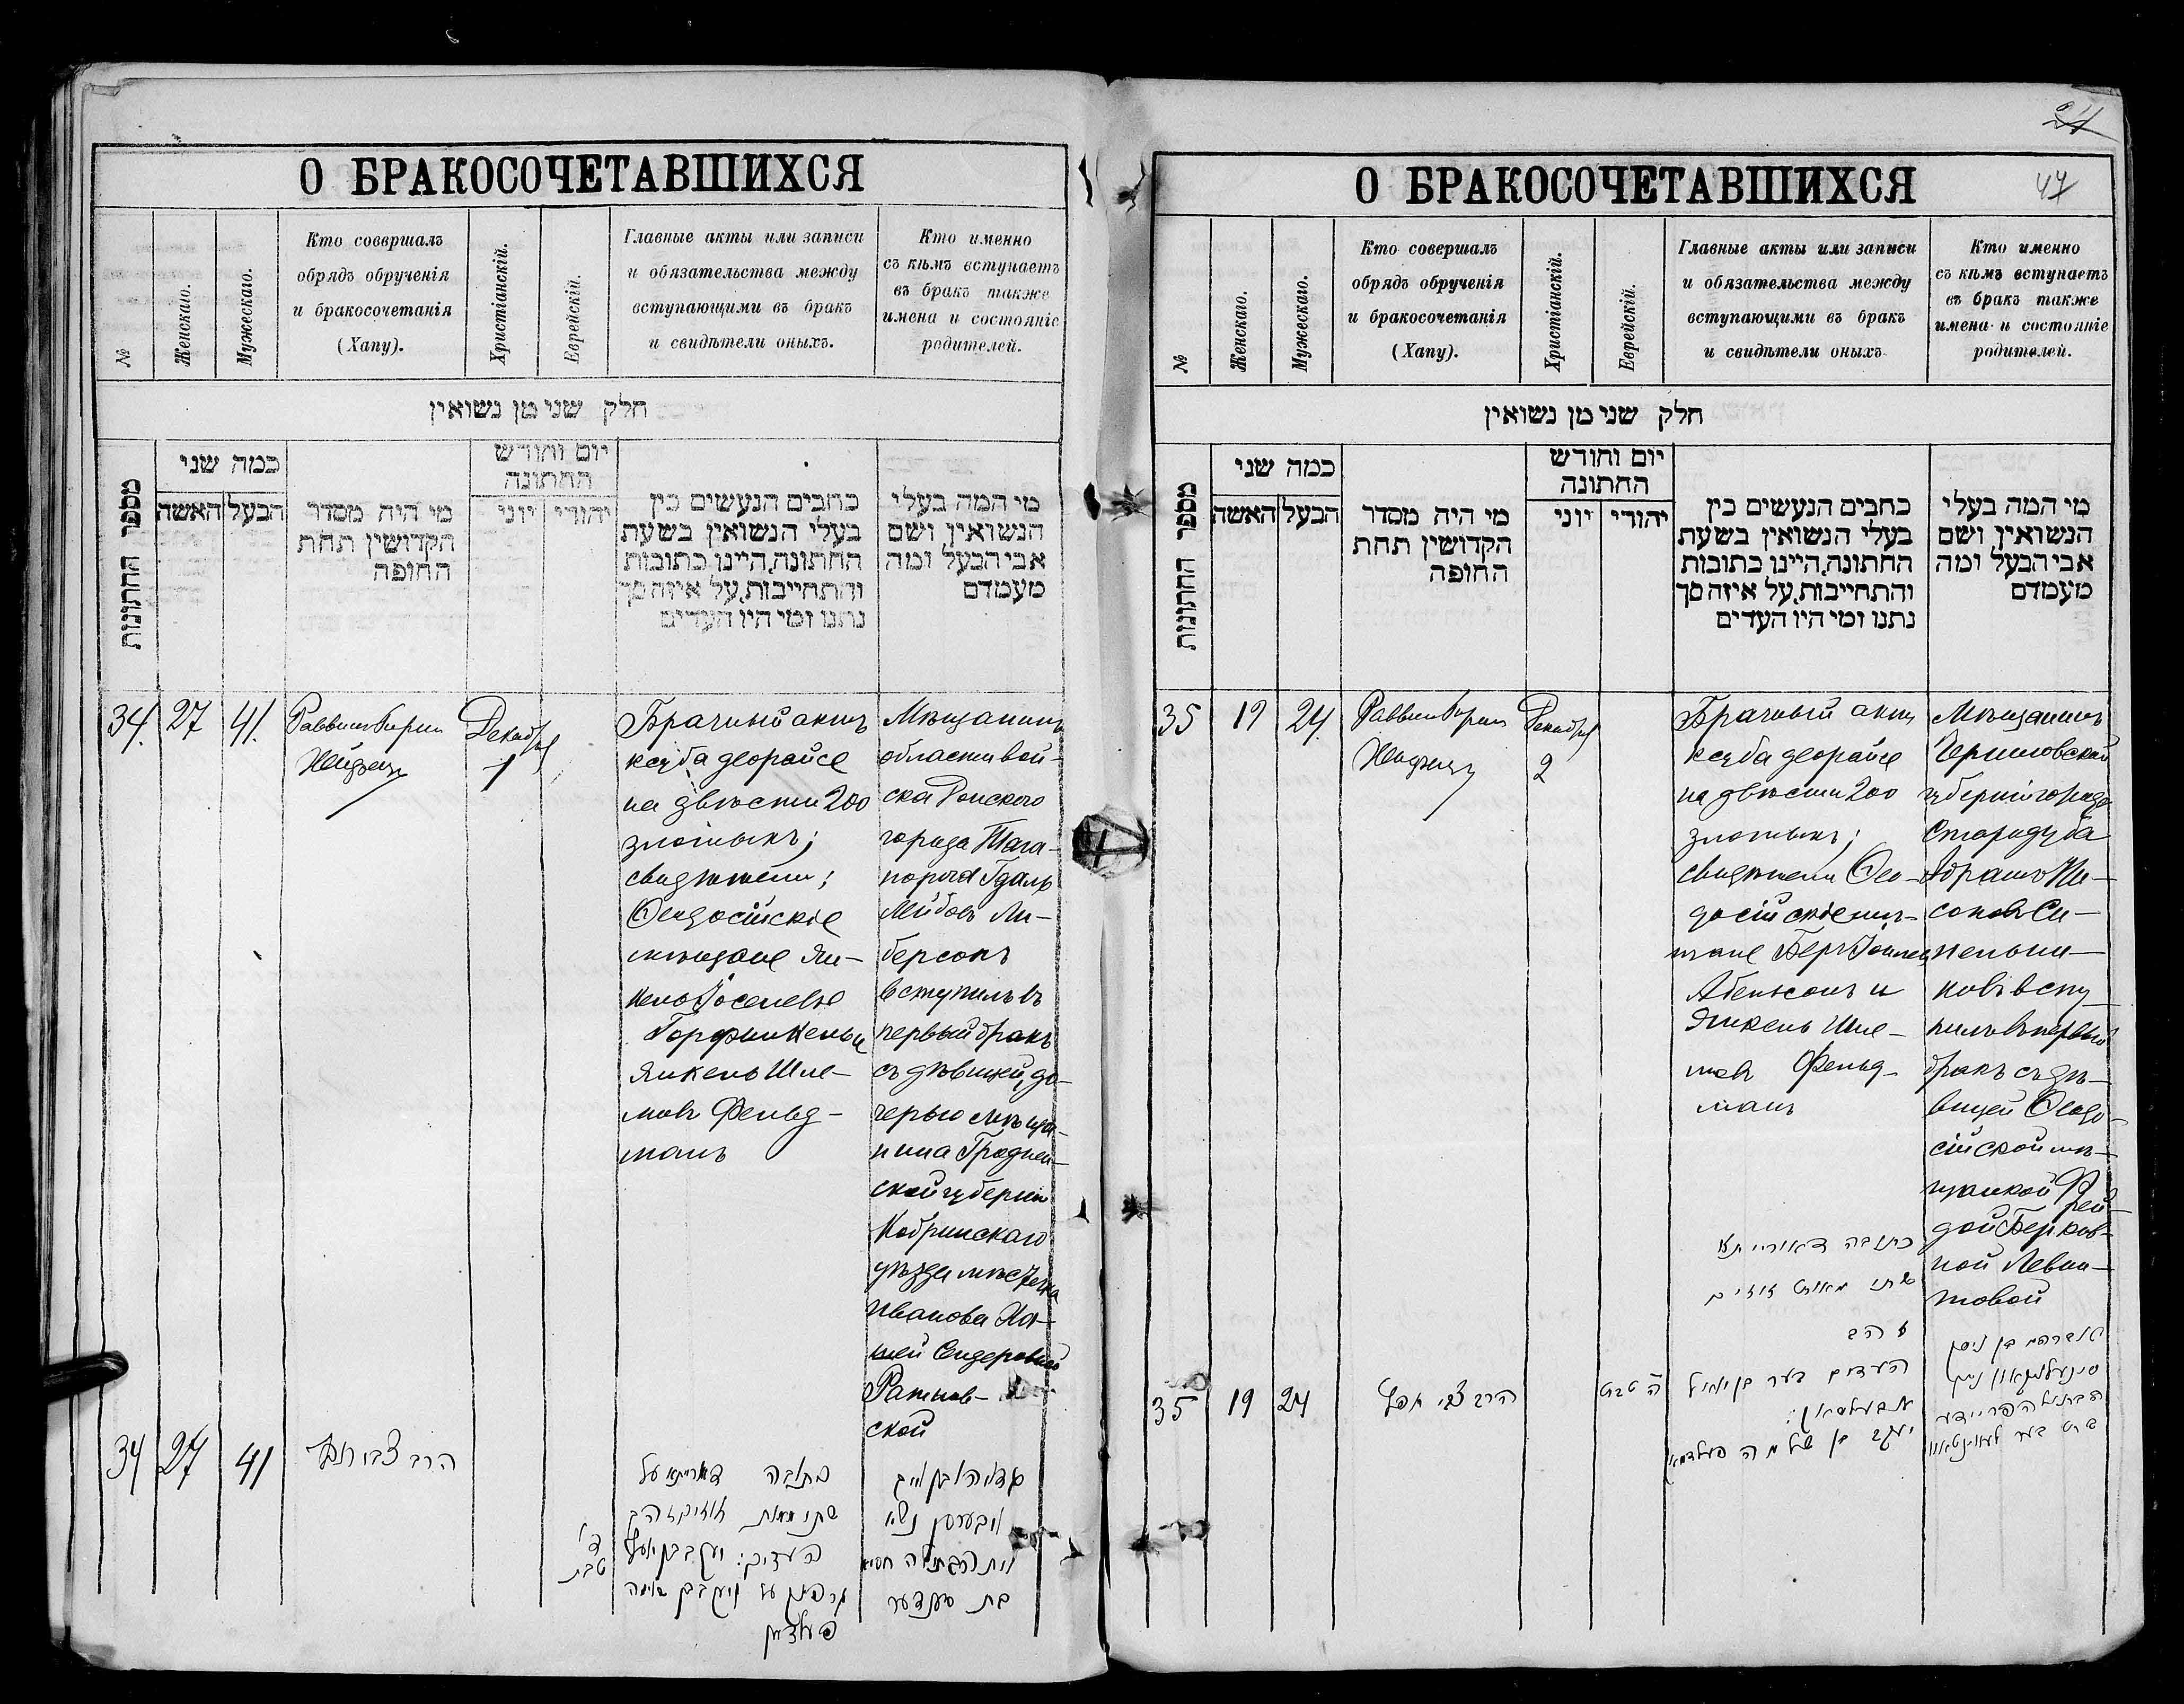 О БРАКОСОЧЕТАВШИХСЯ
№
Женскаго.
Мужескаго.
Кто совершалъ
обрядъ обрученія
и бракосочетанія
(Хапу).
Христіанскій.
Еврейскій.
Главные акты или записи
и обязательства между
вступающими въ бракъ
и свидѣтели оныхъ.
Кто именно
съ кѣмъ вступаетъ
въ бракъ также
имена и состояніе
родителей.
חלק שני מן נשואין
מספר החתונות
כמה שני
הבעל
האשה
מי היה מסדר
הקדושין תחת
החופה
יום וחודש
החתונה
יהודי
יוני
כתבים הנעשים בין
בעלי הנשואין בשעת
החתונה, היינו כתובות
והתחייבות, על איזה סך
נתנו ומי היו העדים
מי המה בעלי
הנשואין ושם
אבי הבעל ומה
מעמדם
34.
27
41.
Раввинъ
Декабрь
1
Брачный актъ
ксуба деорайсе
на двѣсти 200
злотыхъ;
свидѣтели;
Ѳеодосійскіе
мѣщане Ян-
кель Іоселевъ
Горфинкель и
Янкель Шле-
мовъ Фельд-
манъ
Мѣщанинъ
области вой-
ска Донского
города Тага-
нрога Гдаль
Лейбовъ Ли-
берсонъ
вступилъ въ
первый бракъ
съ дѣвицей, до-
черью мѣща-
нина Гроднен-
ской губерніи
Кобринскаго
уѣзда мѣстечка
Иванова Ха-
сей Сендеровной
Ратнов-
ской
34
27
41
הרב צבי
ד׳
טבת
כתובה דאורייתא על
שתי מאות זוזים זהב
העדים: יעקב בן יוסף
גרפינקעל ויעקב בן שלמה
פעלדמן
גדליהו בן לייב
ליבערסון נשא
את הבתולה חסיא
בת סענדער
О БРАКОСОЧЕТАВШИХСЯ
47
№
Женскаго.
Мужескаго.
Кто совершалъ
обрядъ обрученія
и бракосочетанія
(Хапу).
Христіанскій.
Еврейскій.
Главные акты или записи
и обязательства между
вступающими въ бракъ
и свидѣтели оныхъ.
Кто именно
съ кѣмъ вступаетъ
въ бракъ также
имена и состояніе
родителей.
חלק שני מן נשואין
מספר החתונות
כמה שני
הבעל
האשה
מי היה מסדר
הקדושין תחת
החופה
יום וחודש
החתונה
יהודי
יוני
כתבים הנעשים בין
בעלי הנשואין בשעת
החתונה, היינו כתובות
והתחייבות, על איזה סך
נתנו ומי היו העדים
מי המה בעלי
הנשואין ושם
אבי הבעל ומה
מעמדם
35
19
24.
Раввинъ
Декабрь
2
Брачный актъ
ксуба деорайсе
на двѣсти 200
злотыхъ;
свидѣтели Ѳео-
досійскіе мѣ-
щане Беръ
Абельсонъ и
Янкель Шле-
мовъ Фельд-
манъ
Мѣщанинъ
Черниговской
губерніи города
Стародуба
Абрамъ Ни-
соновъ Си-
нельни-
ковъ всту-
пилъ въ первый
бракъ съ дѣ-
вицей Ѳеодо-
сійской мѣ-
щанкой Фрей-
дой Берков-
ной Леви-
товой
35
19
24
הרב צבי
ה טבת
כתובה דאורייתא
שתי מאות זוזים
זהב
העדים בער בן
אבעלסאן:
יעקב בן שלמה פעלדמאן
אברהם בן ניסן
סינעלניקאוו
הבתולה פריידע
בת בער לעוויטאוו